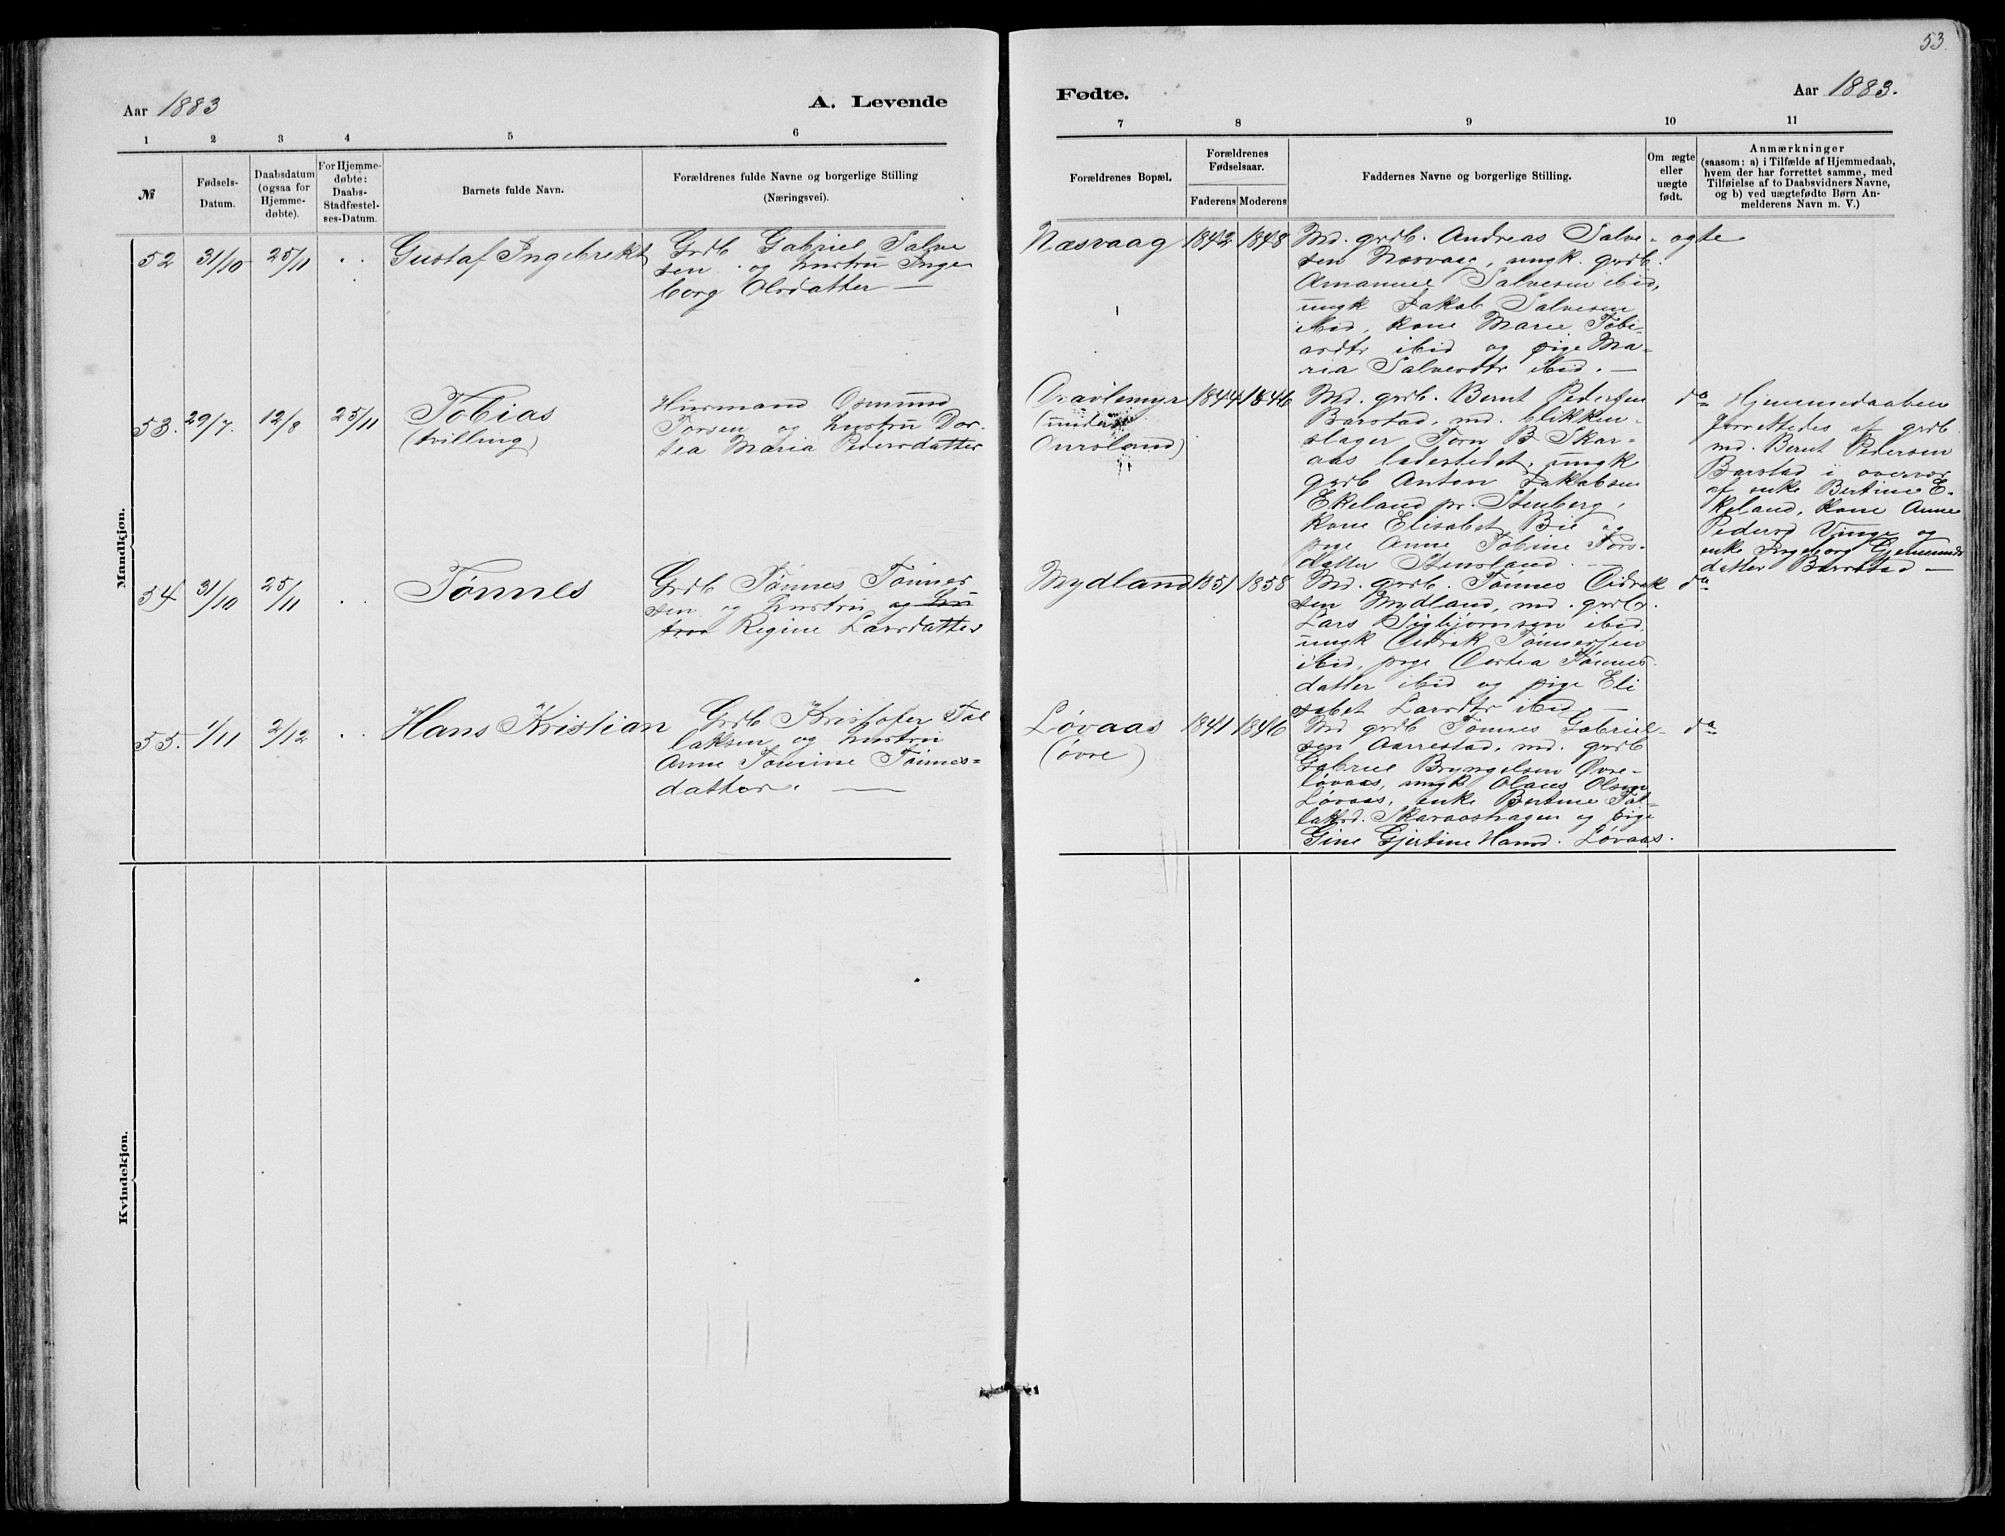 53.
Aar 1883
A. Levende
Fødte.
Aar 1883.
1 2 3 4 5 6
7 8 9 10 11
№
Fødsels-
Datum.
Daabsdatum
(ogsaa for
Hjemme-
døbte).
For Hjemme-
døbte:
Daabs-
Stadfæstel-
ses-Datum.
Barnets fulde Navn.
Forældrenes fulde Navne og borgerlige Stilling
(Næringsvei).
Forældrenes Bopæl.
Forældrenes
Fødselsaar.
Faderens Moderens
Faddernes Navne og borgerlige Stilling.
Om ægte
eller
uægte
født.
Anmærkninger
(saasom: a) i Tilfælde af Hjemmedaab,
hvem der har forrettet samme, med
Tilføielse af to Daabsvidners Navne,
og b) ved uægtefødte Børn An-
melderens Navn m. V.)
Mandkjøn.
52 31/10 25/11 . .
Gustaf Ingebrekt
Grdb Gabriel Salve
sen og hustru Inge
borg Olsdatter —
Næsvaag
1842 1848
Md. grdb. Andreas Salve-
sen Næsvaag, ungk. grdb.
Amanuel Salvesen ibid,
ungk Jakob Salvesen
ibid, kone Marie Tobi-
asdtr ibid og pige Ma-
ria Salvesdtr ibid. —
ægte
53. 29/7. 12/8 25/11
Tobias
(tvilling)
Husmand Osmund
Torsen og hustru Dor-
tea Maria Pedersdatter
(under
Oursland)
1844 1846
Md. grdb. Bernt Pedersen
Barstad, md. blikken-
slager Törn B Skar-
aas ladestedet, ungk
grdb Anton Jakobsen
Ekeland pr. Stenberg,
kone Elisabet Bie og
pige Anne Tobine Tors-
datter Stensland. —
do
Hjemmedaaben
forrettedes af grdb.
md. Bernt Pedersen
Barstad i overvær
af enke Bertine E-
keland, kone Anne
Pedersd Vinge og
enke Ingeborg Gjermunds
datter Barstad —
54 31/10 25/11 . .
Tønnes
Grdb Tønnes Tønnes
sen og hustru og hu
stru Regine Larsdatter
Mydland
1851 1858
Md. grdb. Tønnes Aidrik
sen Mydland, md. grdb.
Lars Sigbjørnsen ibid
ungk Aidrik Tønnessen
ibid, pige Tønnes-
datter ibid og pige Eli
sabet Larsdtr ibid —
do
55. 1/11 2/12 . .
Hans Kristian
Grdb Kristofer Tol
laksen og hustru
Anne Tomine Tønnes-
datter. —
Løvaas
(øvre)
1841 1846
Md grdb Tønnes Gabriel-
sen Aarrestad, md. grdb
Gabriel Bryngelsen Øvre-
løvaas, ungk Olaus Olsen
Løvaas, enke Bertine Tol-
laksd. Skaraashagen og pige
Gine Gjertine Hansd. Løvaas.
do
Kvindekjøn.